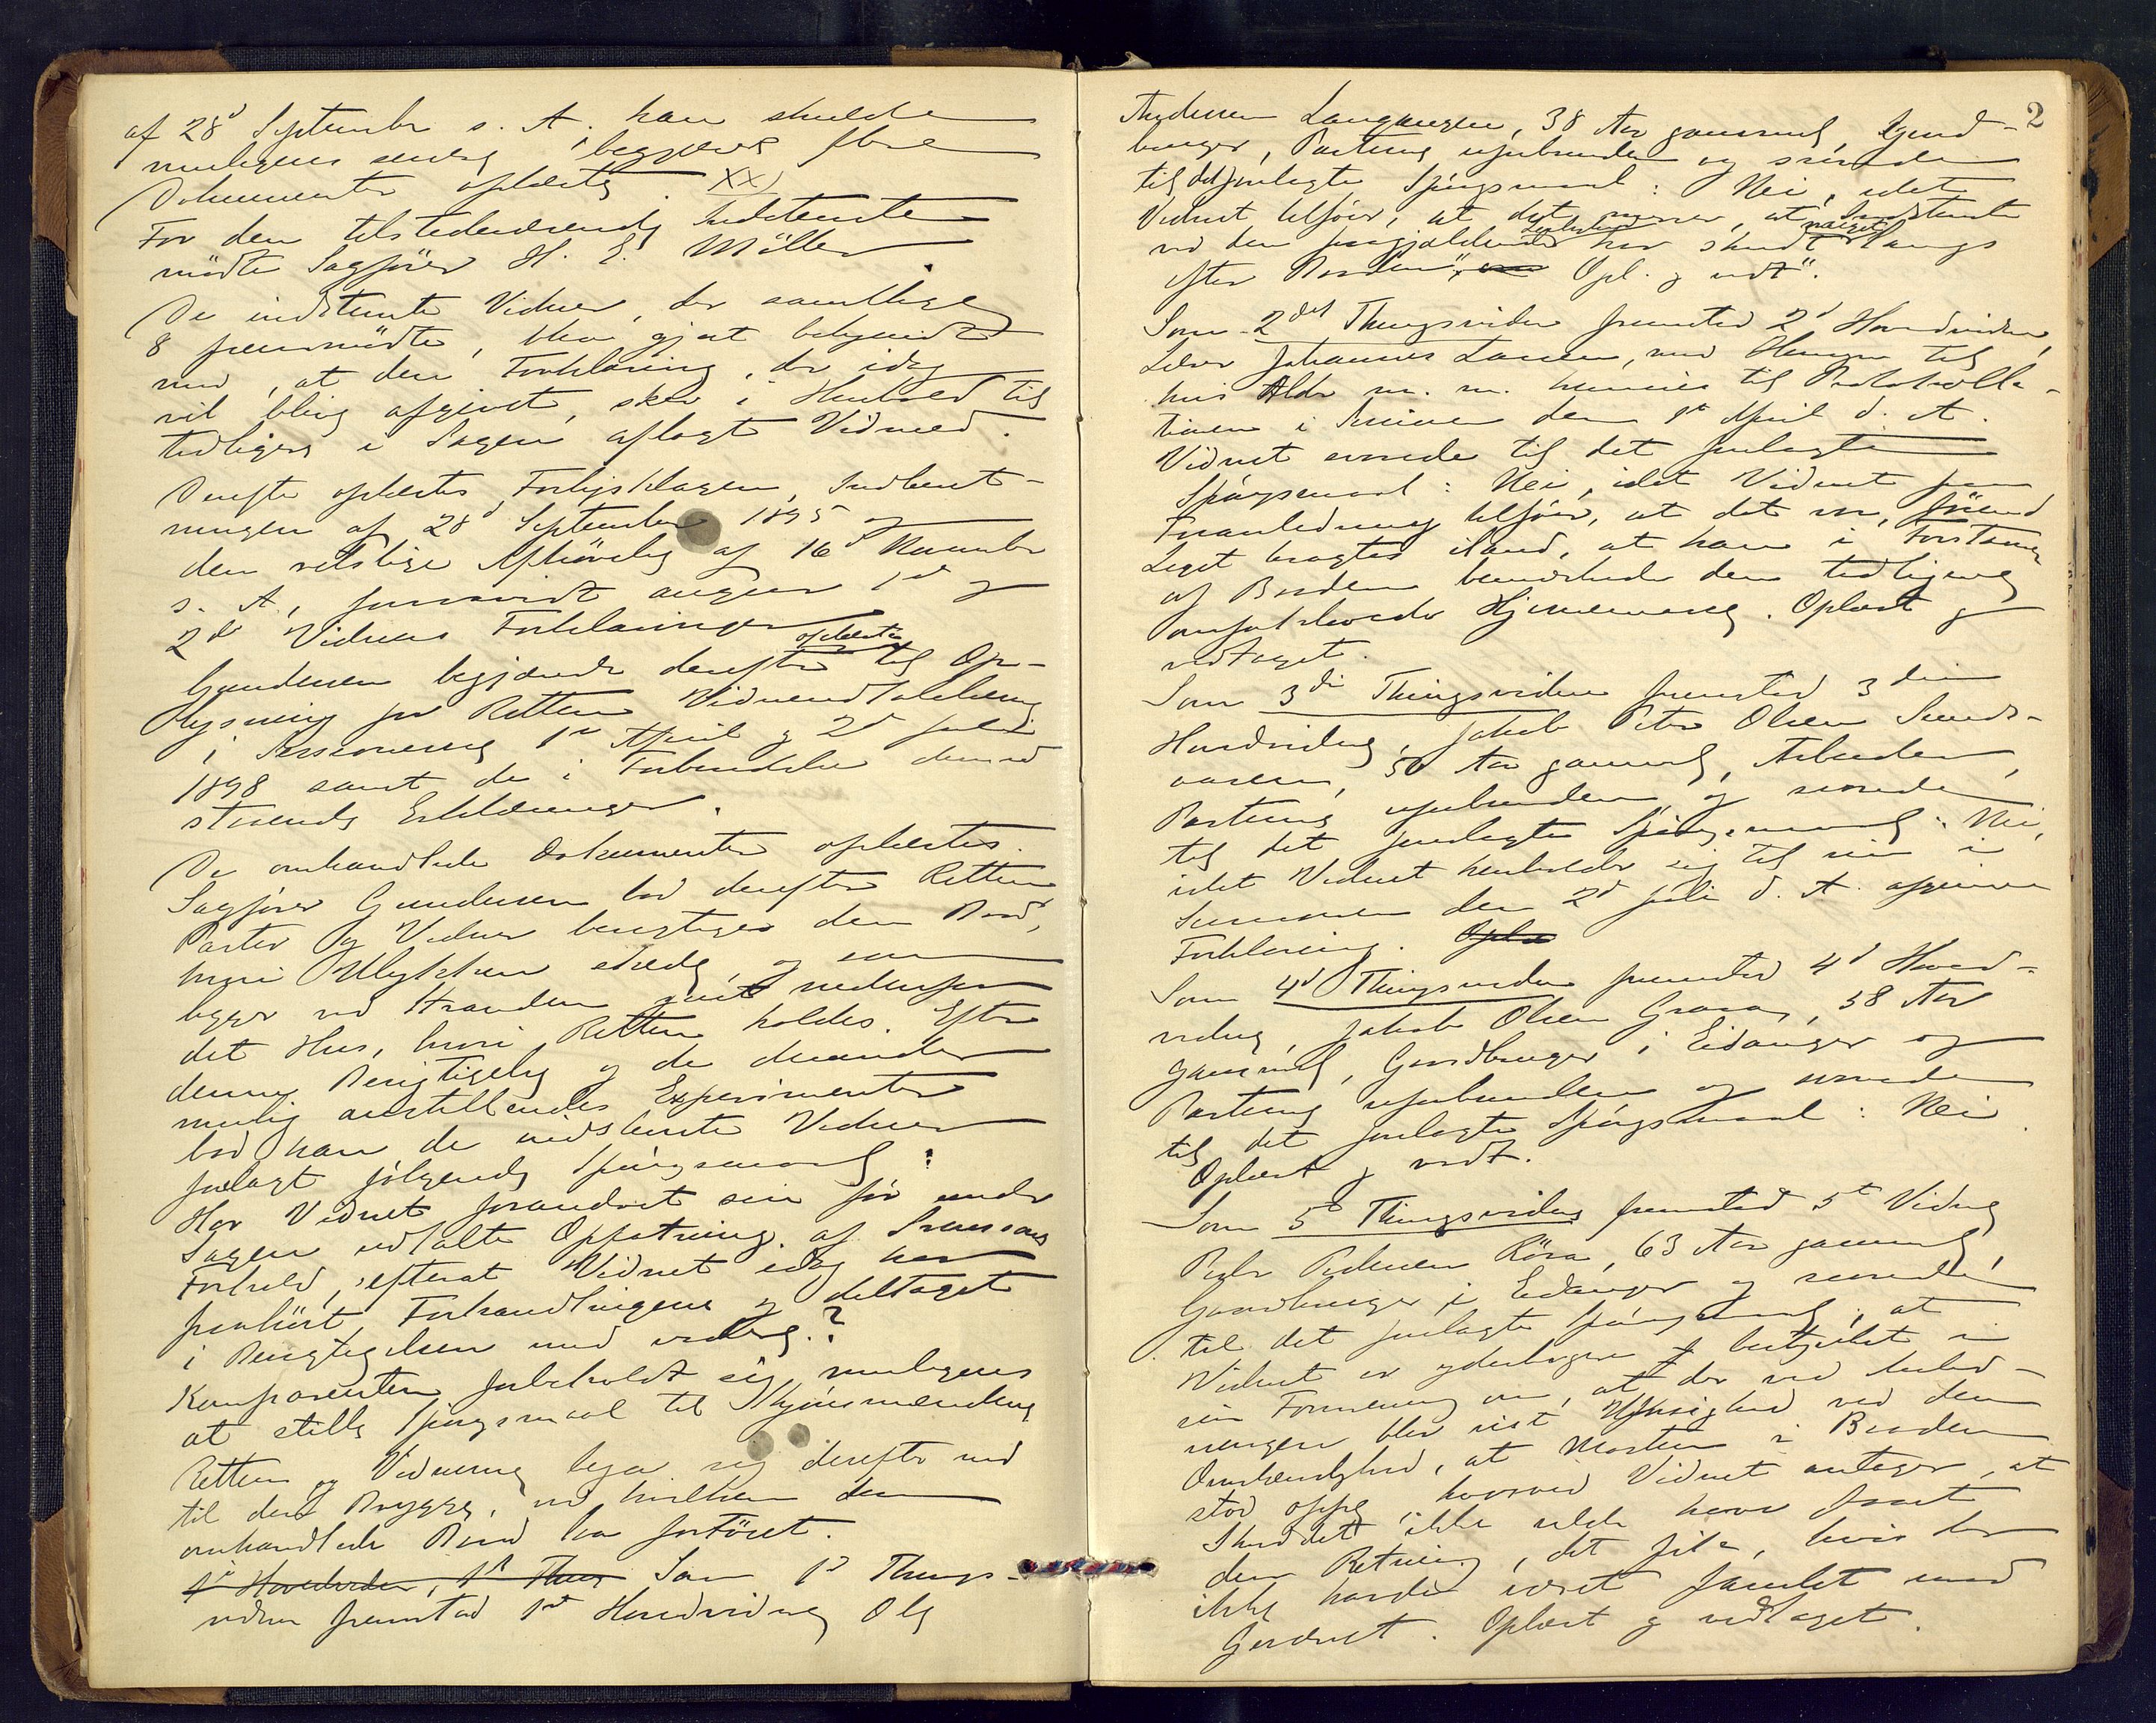 af 28d September s. A. han skulde
muligens senere begjære flere
Dokumenter oplæste. XX)
For den tilstedeværende Indstevnte
mødte Sagfører H. E. Möller.
De indstevnte Vidner, der samtlige
8 fremmødte, blev gjort bekjendt
med, at den Forklaring, der idag
vil blive afgivet, sker i Henhold til
tidligere i Sagen aflagt Vidneed.
Derefter oplæstes Forligsklagen, Indberet-
ningen af 28d September 1895 og
den retslige Afhörelse af 16d November
s. A., forsaavidt angaar 1st og
2det Vidnes Forklaringer
Gundersen begjærede derefter oplæst til Op-
lysning for Retten Vidneudtalelserne
i Sessionerne 1ste April og 2d Juli
1898 samt de i Forbindelse dermed
staaende Erklæringer.
De omhandlede Dokumenter oplæstes.
Sagfører Gundersen bad derefter Retten,
Parter og Vidner besigtige den Baad,
hvori Ulykken skede, og som
ligger ved Stranden ret nedenfor
det Hus, hvori Retten holdes. Efter
denne Besigtigelse og de derunder
mulig anstillende Experimenter
bad han de indstevnte Vidner
forelagt følgende Spörgsmaal:
Har Vidnet forandret sin før under
Sagen udtalte Opfatning af Svenssons
Forhold, efterat Vidnet idag har
paahört Forhandlingerne og deltaget
i Besigtigelsen med videre?
Komparenten forbeholdt sig muligens
at stille Spörgsmaal til Skjönsmændene
Retten og Vidnerne begav sig derefter ned
til den Brygge, ved hvilken den
omhandlede Baad laa fortöiet.
1st Hovedvidne, 1st Thing Som 1st Things-
vidne fremstod 1st Hovedvidne Ole
2
Andersen Langangen, 38 Aar gammel, Gaard-
bruger, Parterne uforbunden og svarede
til det forelagte Spörgsmaal: Nei, idet
Vidnet tilföier, at det mener, at Indstevnte
ved den paagjældende Leilighed har skudt noget langs
efter Baaden", Opl. og vedt".
Som 2det Thingsvidne fremstod 2d Hovedvidne,
Lærer Johannes Larsen, med Hensyn til
hvis Alder m. m. henvises til Protokolla-
tionen i Seancen den 1st April d. A.
Vidnet svarede til det forelagte
Spörgsmaal: Nei, idet Vidnet paa
Foranledning tilföier, at det var, förend
Liget bragtes iland, at han i Forstavnen
af Baaden bemærkede den tidligere
omforklarede Hjernemasse. Oplæst og
vedtaget.
Som 3die Thingsvidne fremstod 3die
Hovedvidne, Jakob Peter Olsen Sunds-
aasen, 50 Aar gammel, Arbeider,
Parterne uforbunden og svarede
til det forelagte Spörgsmaal: Nei,
idet Vidnet henholder sig til sin i
Seancen den 2d Juli d. A. afgivne
Forklaring. Oplæ
Som 4d Thingsvidne fremstod 4d Hoved-
vidne, Jakob Olsen Grava, 58 Aar
gammel, Gaardbruger i Eidanger og
Parterne uforbunden og svarede
til det forelagte Spörgsmaal: Nei.
Oplæst og vedt.
Som 5te Thingsvidne fremstod 5te Vidne
Peder Pedersen Röra, 63 Aar gammel,
Gaardbruger i Eidanger og svarede
til det forelagte Spörgsmaal, at
Vidnet er yderligere bestyrket i
sin Formening om, at der ved
blev vist Uforsigtighed ved den
Omstændighed, at Masten i Baaden
stod oppe, hvorved Vidnet antager, at
Skuddet ikke vilde have faaet
den Retning, det fik, hvis der
ikke havde været famlet med
Geværet. Oplæst og vedtaget.